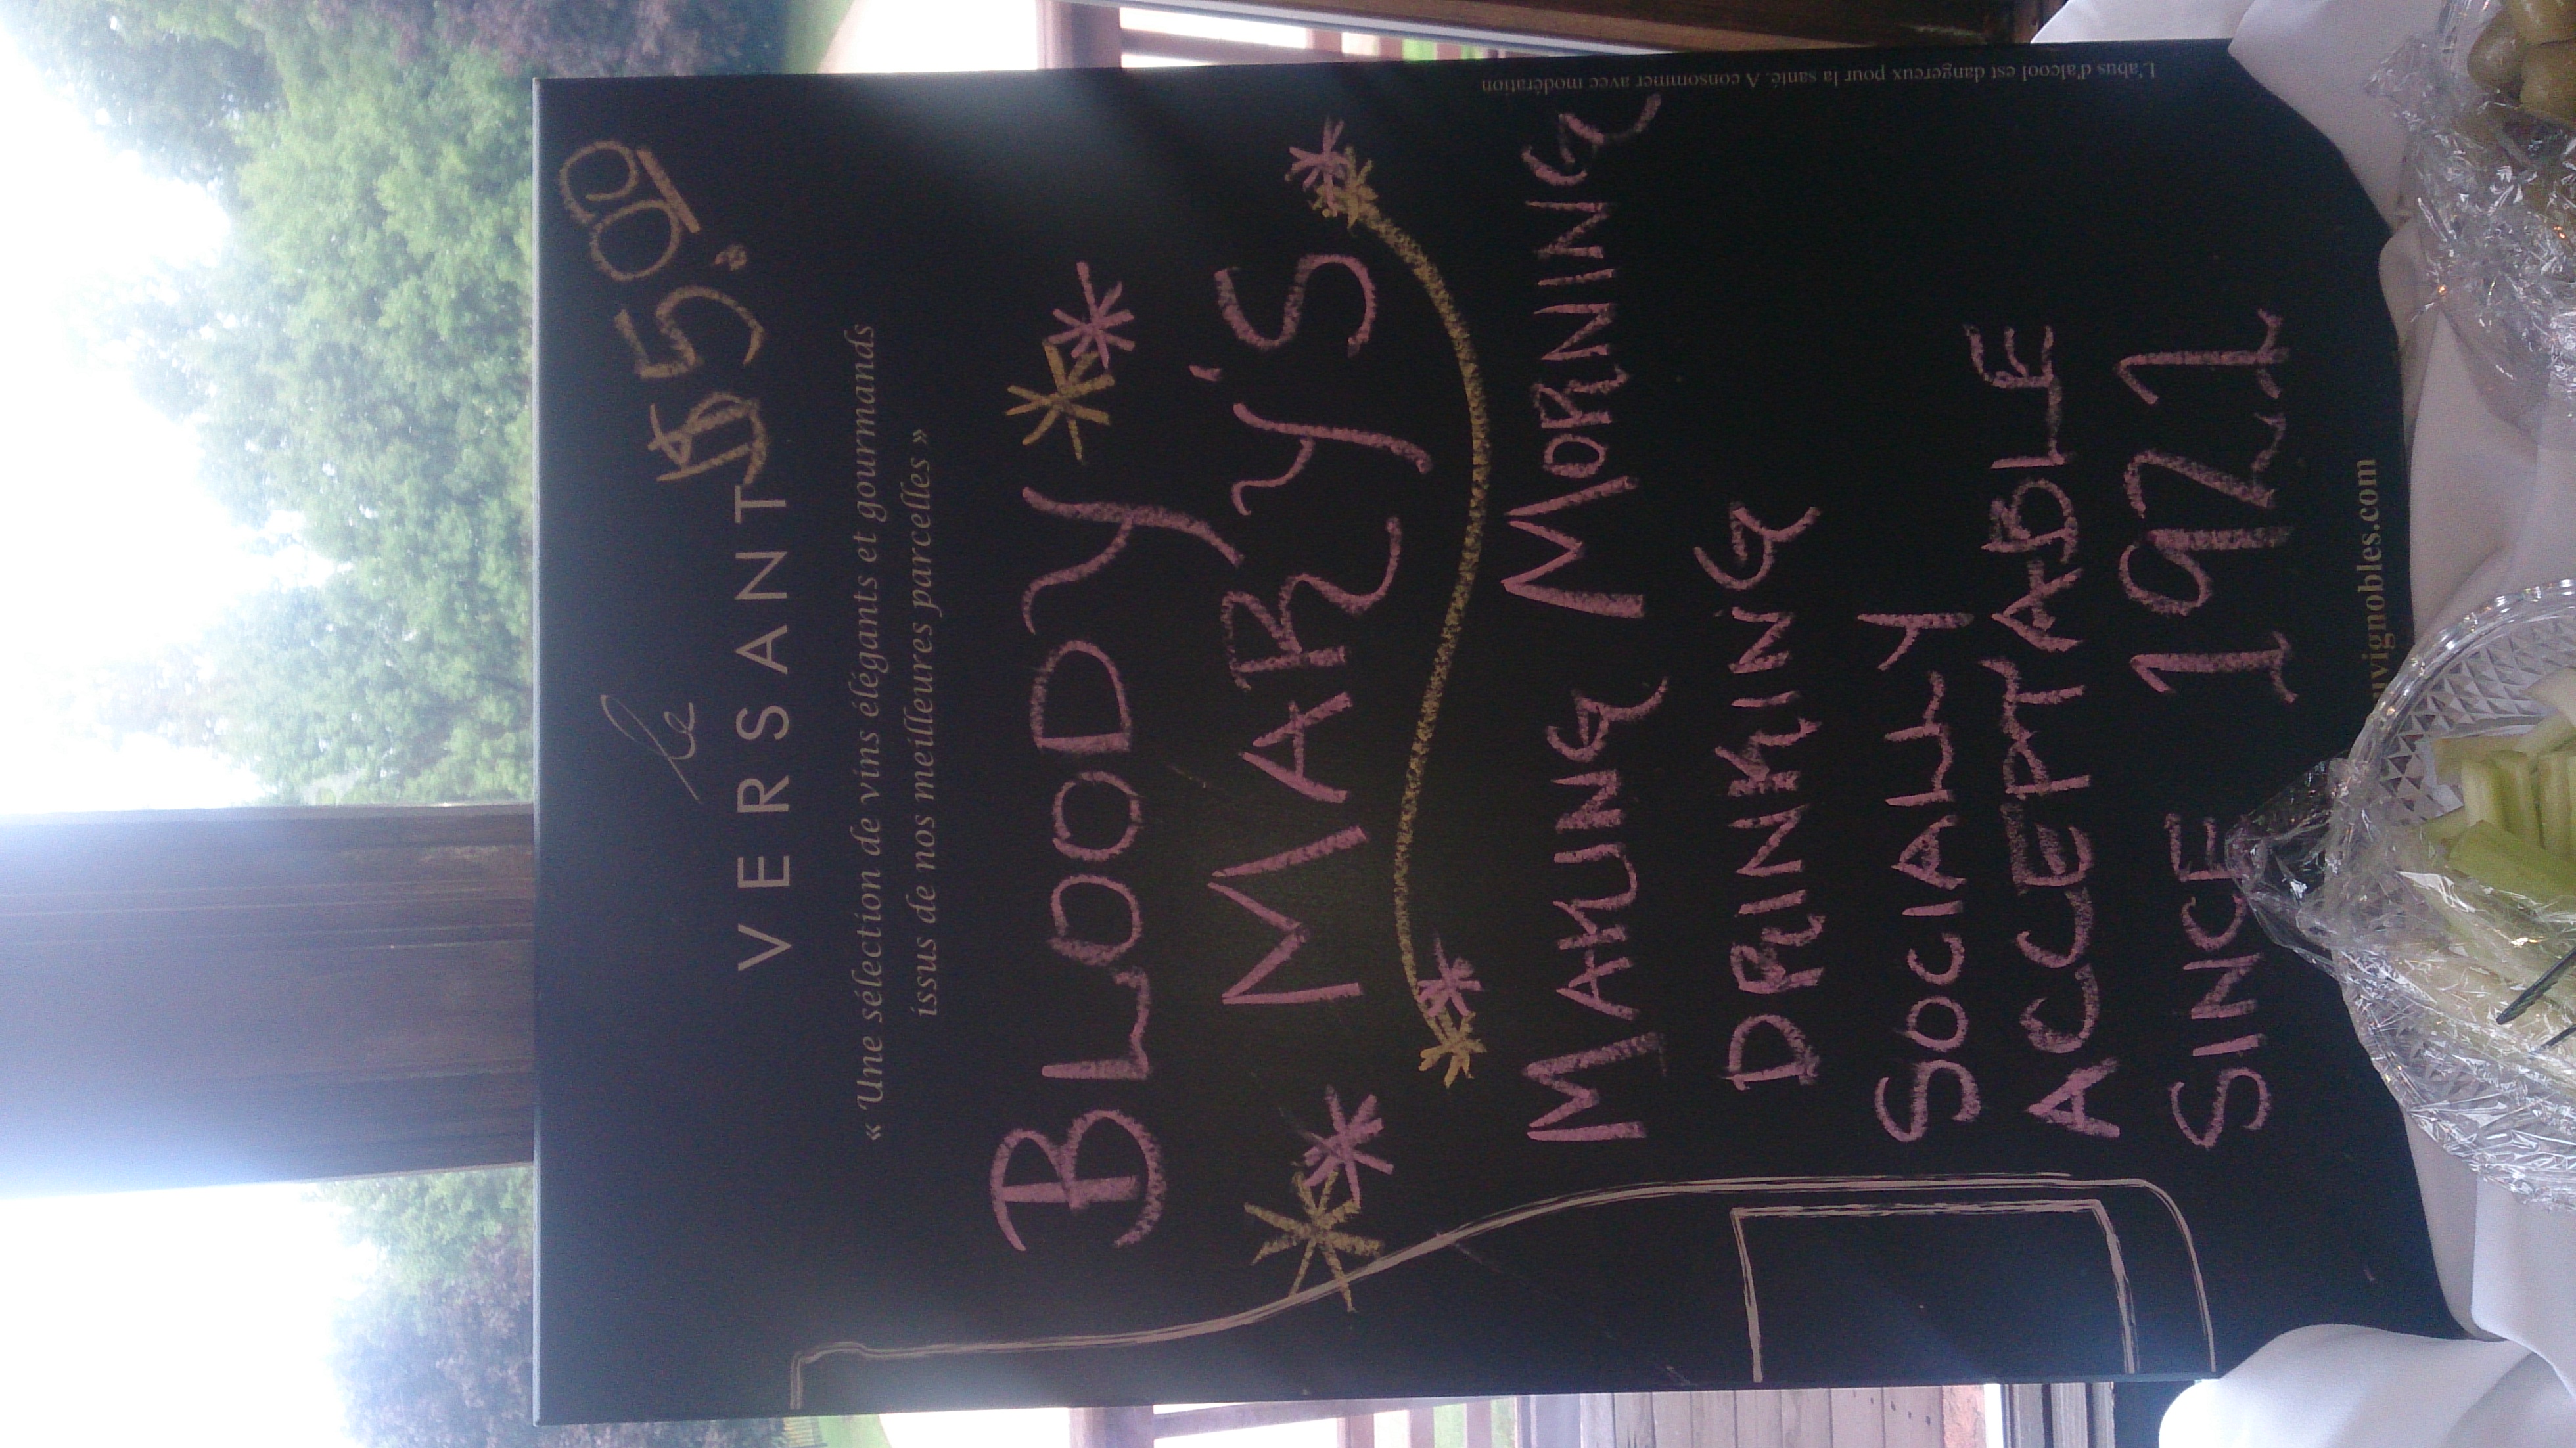 $5.00
le
VERSANT
« Une sélection de vins élégants et gourmands
issus de nos meilleures parcelles »
BLOODY
MARY'S
MAKING MORNING
DRINKING
SOCIALLY
ACCEPTABLE
SINCE 1921
uvignobles.com
L'abus d'alcool est dangereux pour la santé. A consommer avec modération